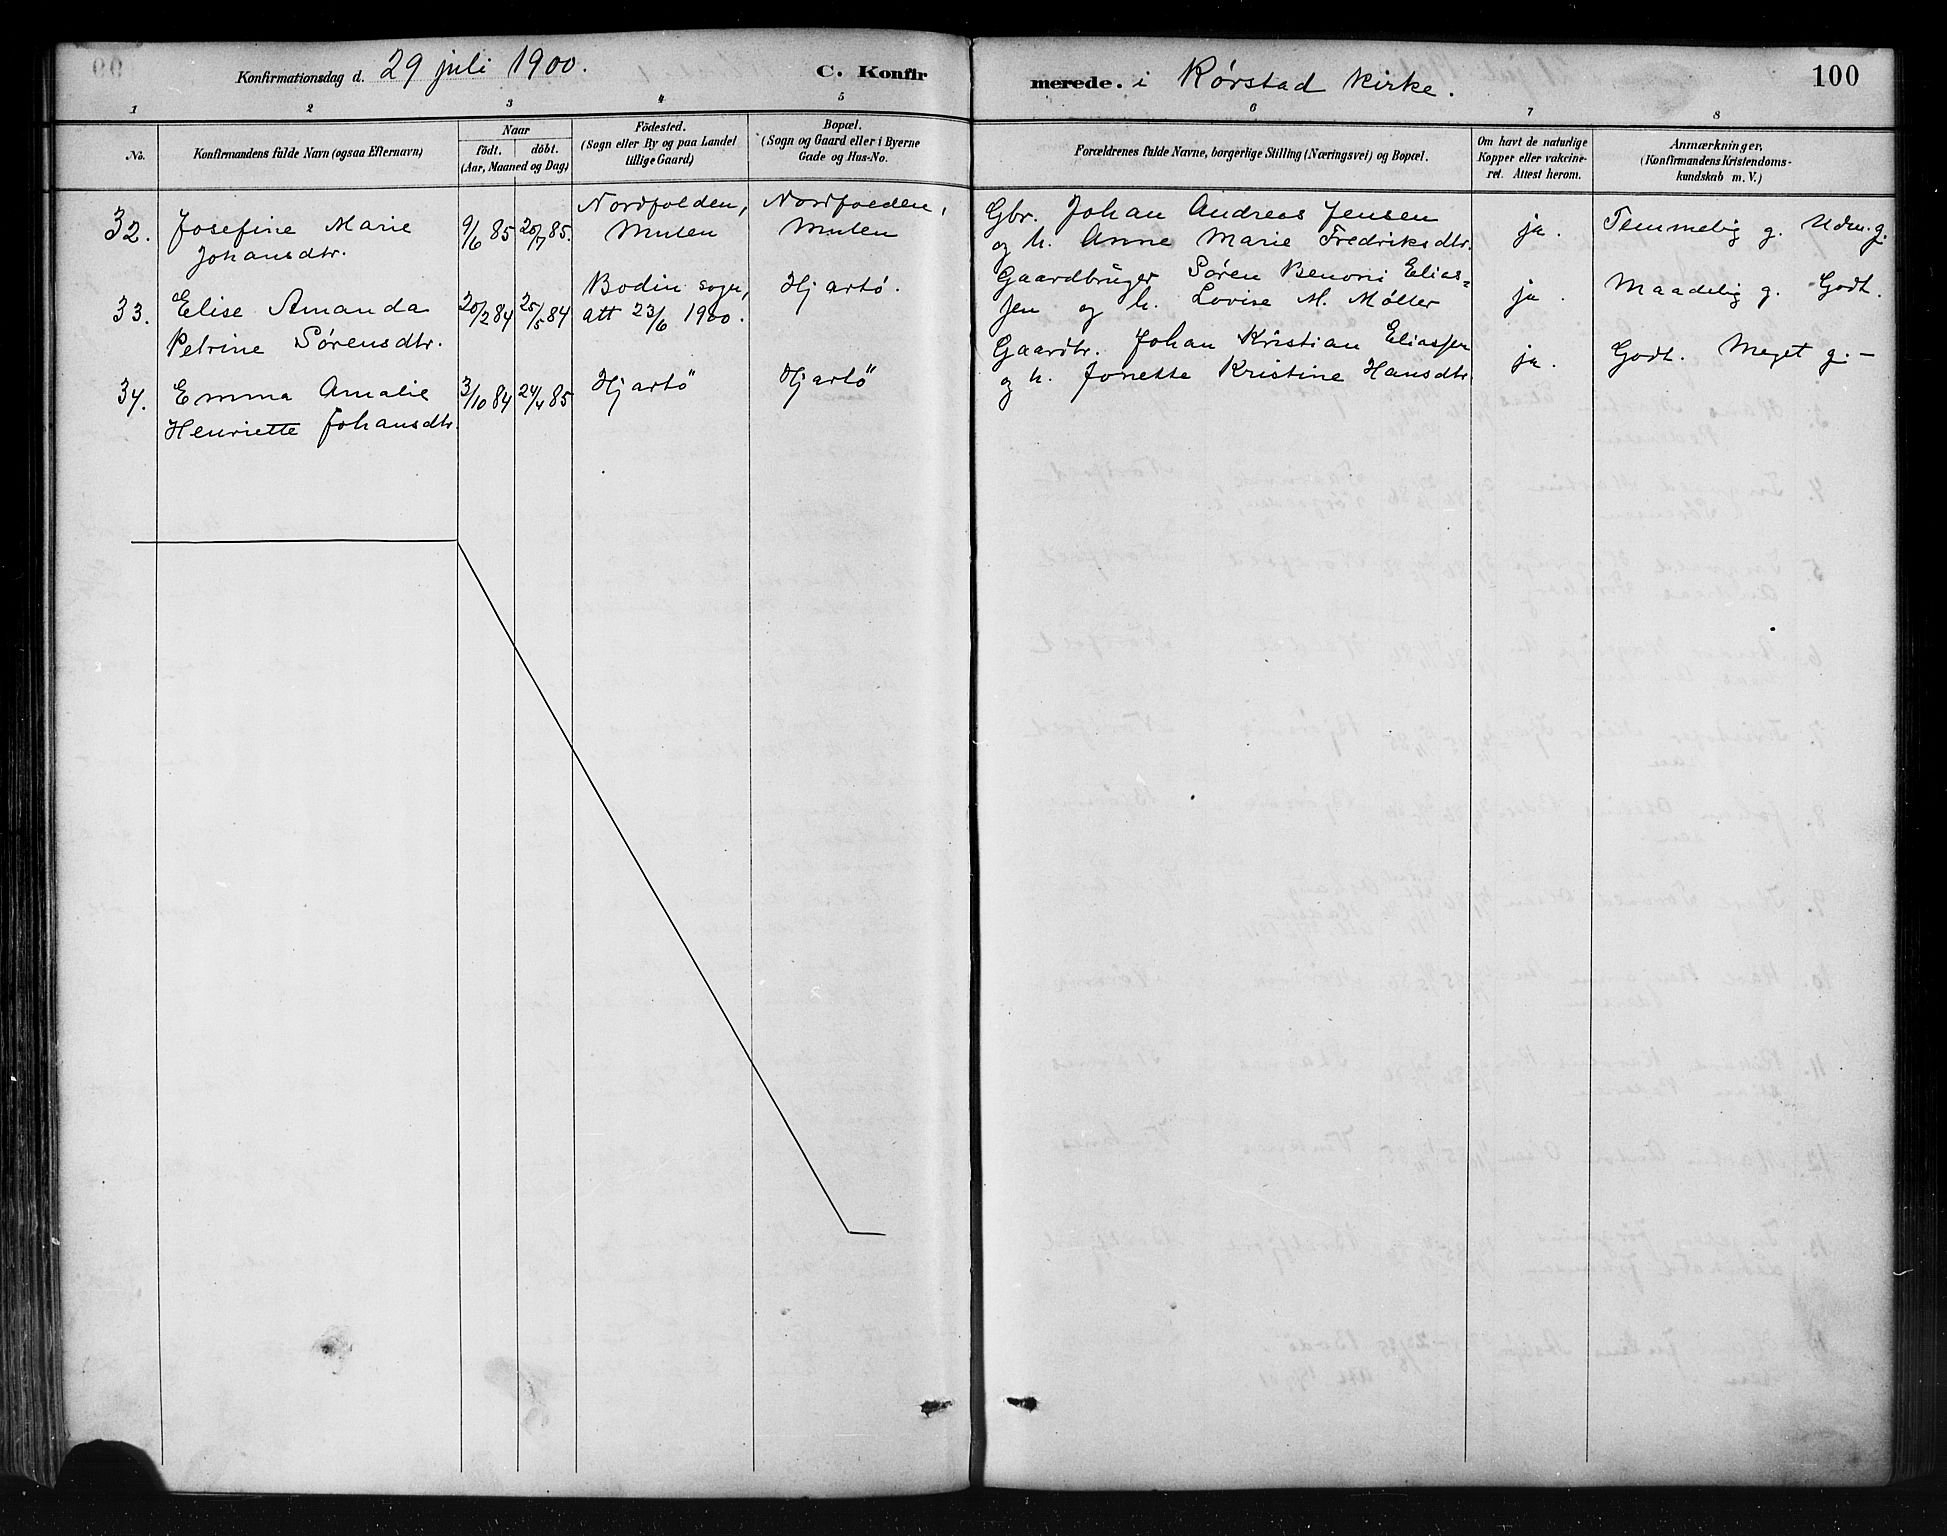 Konfirmationsdag d. 29 juli 1900. C. Konfirmerede. i Rørstad Kirke. 100
1 2 3 4 5 6 7 8
No.
Konfirmandens fulde Navn (ogsaa Efternavn)
Naar
födt. döbt.
(Aar, Maaned og Dag)
Födested.
(Sogn eller By og paa Landet
tillige Gaard)
Bopæl.
(Sogn og Gaard eller i Byerne
Gade og Hus-No.
Forældrenes fulde Navne, borgerlige Stilling (Næringsvei) og Bopæl.
Om havt de naturlige
Kopper eller vakcine-
ret. Attest herom.
Anmærkninger,
(Konfirmandens Kristendoms-
kundskab m. V.)
32. Josefine Marie
Johansdtr.
9/6 85 20/7 85.
Nordfolden,
Mulen
Nordfolden,
Mulen
Gbr. Johan Andreas Jensen
og h. Anne Marie Fredriksdtr.
ja.
Temmelig g. Udm. g.
33. Elise Amanda
Petrine Sørensdtr.
20/2 84 25/5 84
Bodin sogn,
att 23/6 1900.
Hjartö.
Gaardbruger Søren Benoni Elias-
sen og h. Lovise M. Møller
ja.
Maadelig g. Godt.
34. Emma Amalie
Henriette Johansdtr.
3/10 84 24/4 85
Hjartö
Hjartö
Gaardbr. Johan Kristian Eliassen
og h. Jonette Kristine Hansdtr.
ja.
Godt. Meget g. –